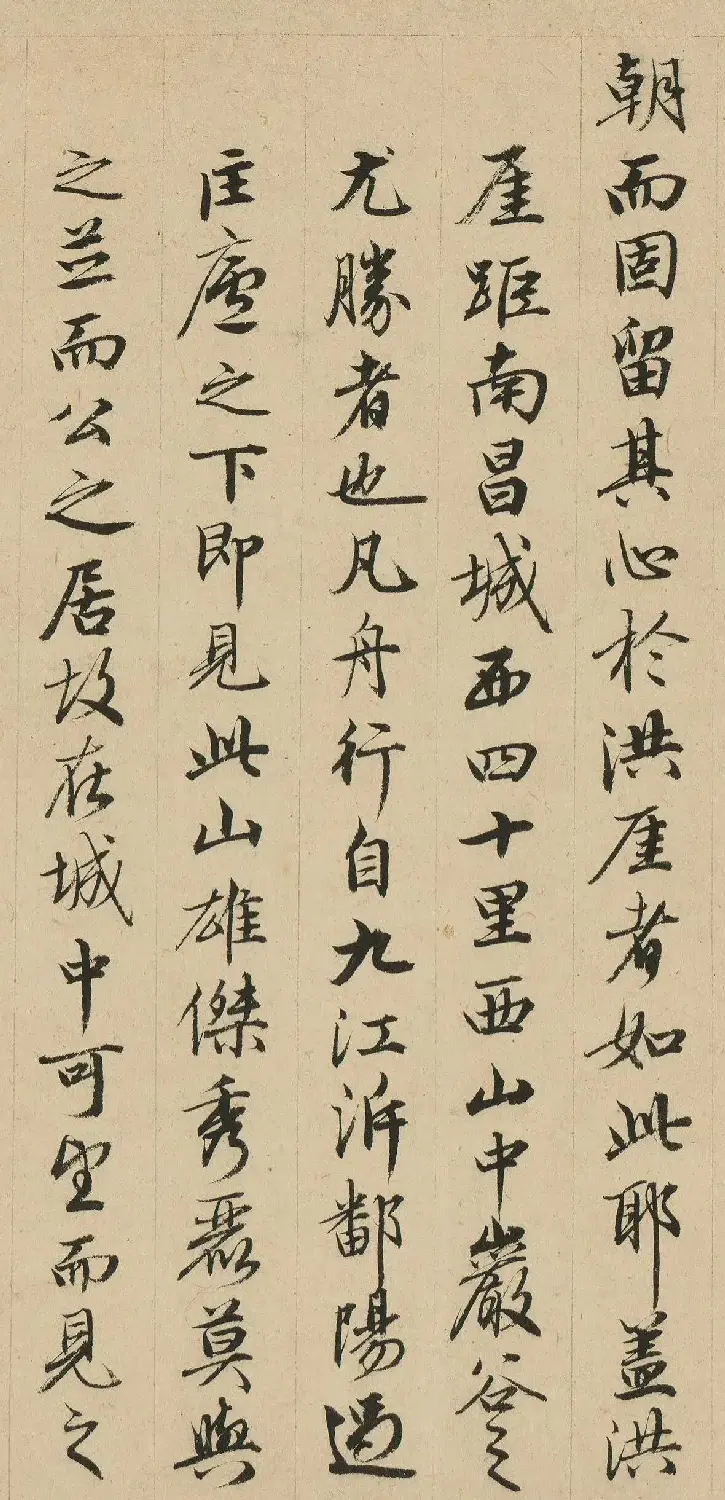 朝而固留其心於洪厓者如此耶蓋洪
厓距南昌城西四十里西山中巖谷之
尤勝者也凡舟行自九江泝鄱陽過
匡廬之下即見此山雄傑秀麗莫與
之並而公之居故在城中可坐而見之